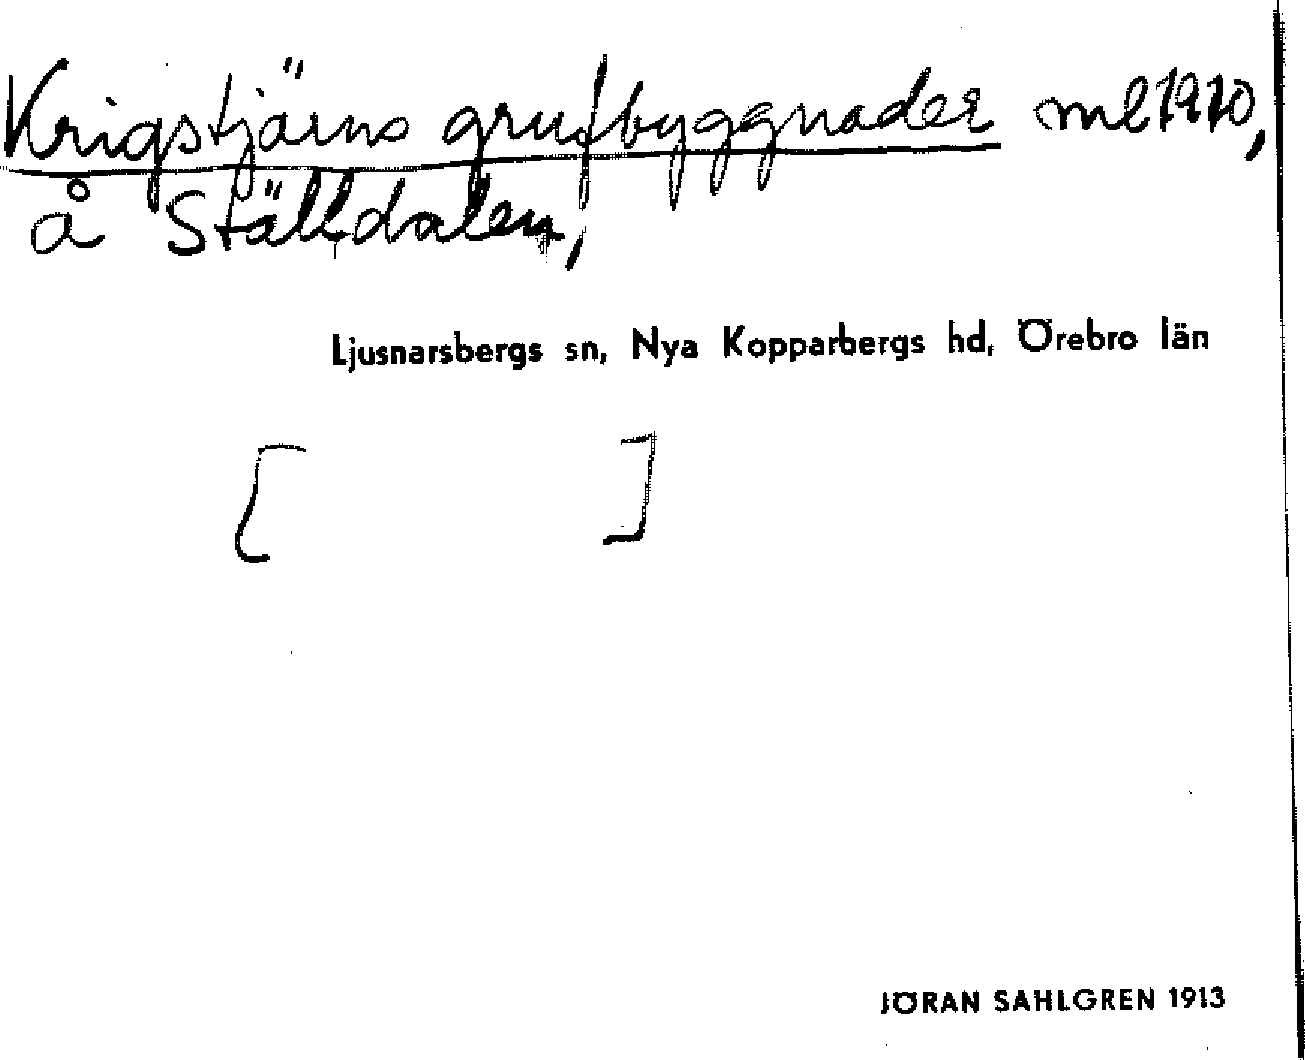 Krigstjärns grufbyggnader ml 1910,
å Ställdalen,
Ljusnarsbergs sn, Nya Kopparbergs hd, Örebro län
[ ]
JÖRAN SAHLGREN 1913